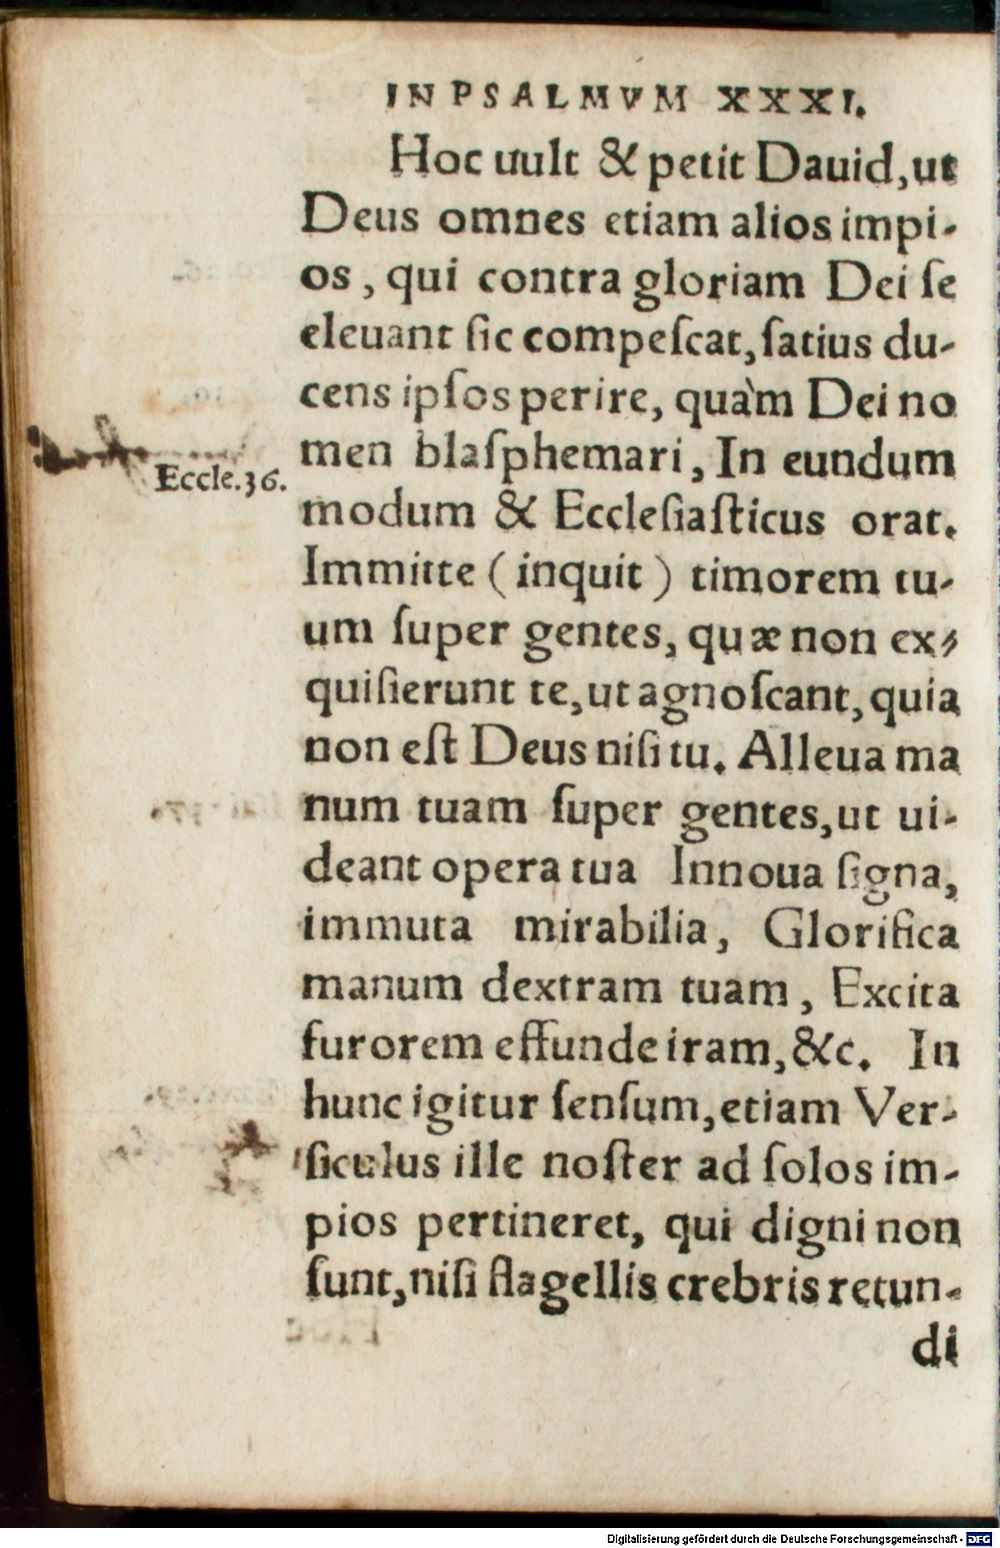 IN PSALMVM XXXI.
Hoc uult & petit Dauid, ut
Deus omnes etiam alios impi-
os, qui contra gloriam Dei ſe
eleuant ſic compeſcat, ſatius du-
cens ipſos perire, quàm Dei no
men blaſphemari, In eundum
Eccle.36.
modum & Eccleſiaſticus orat.
Immitte (inquit) timorem tu-
um ſuper gentes, quæ non ex-
quiſierunt te, ut agnoſcant, quia
non eſt Deus niſi tu. Alleua ma
num tuam ſuper gentes, ut ui-
deant opera tua Innoua ſigna,
immuta mirabilia, Glorifica
manum dextram tuam, Excita
furorem effunde iram, &c. In
hunc igitur ſenſum, etiam Ver-
ſiculus ille noſter ad ſolos im-
pios pertineret, qui digni non
ſunt, niſi flagellis crebris retun-
di
Digitalisierung gefördert durch die Deutsche Forschungsgemeinschaft - DFG